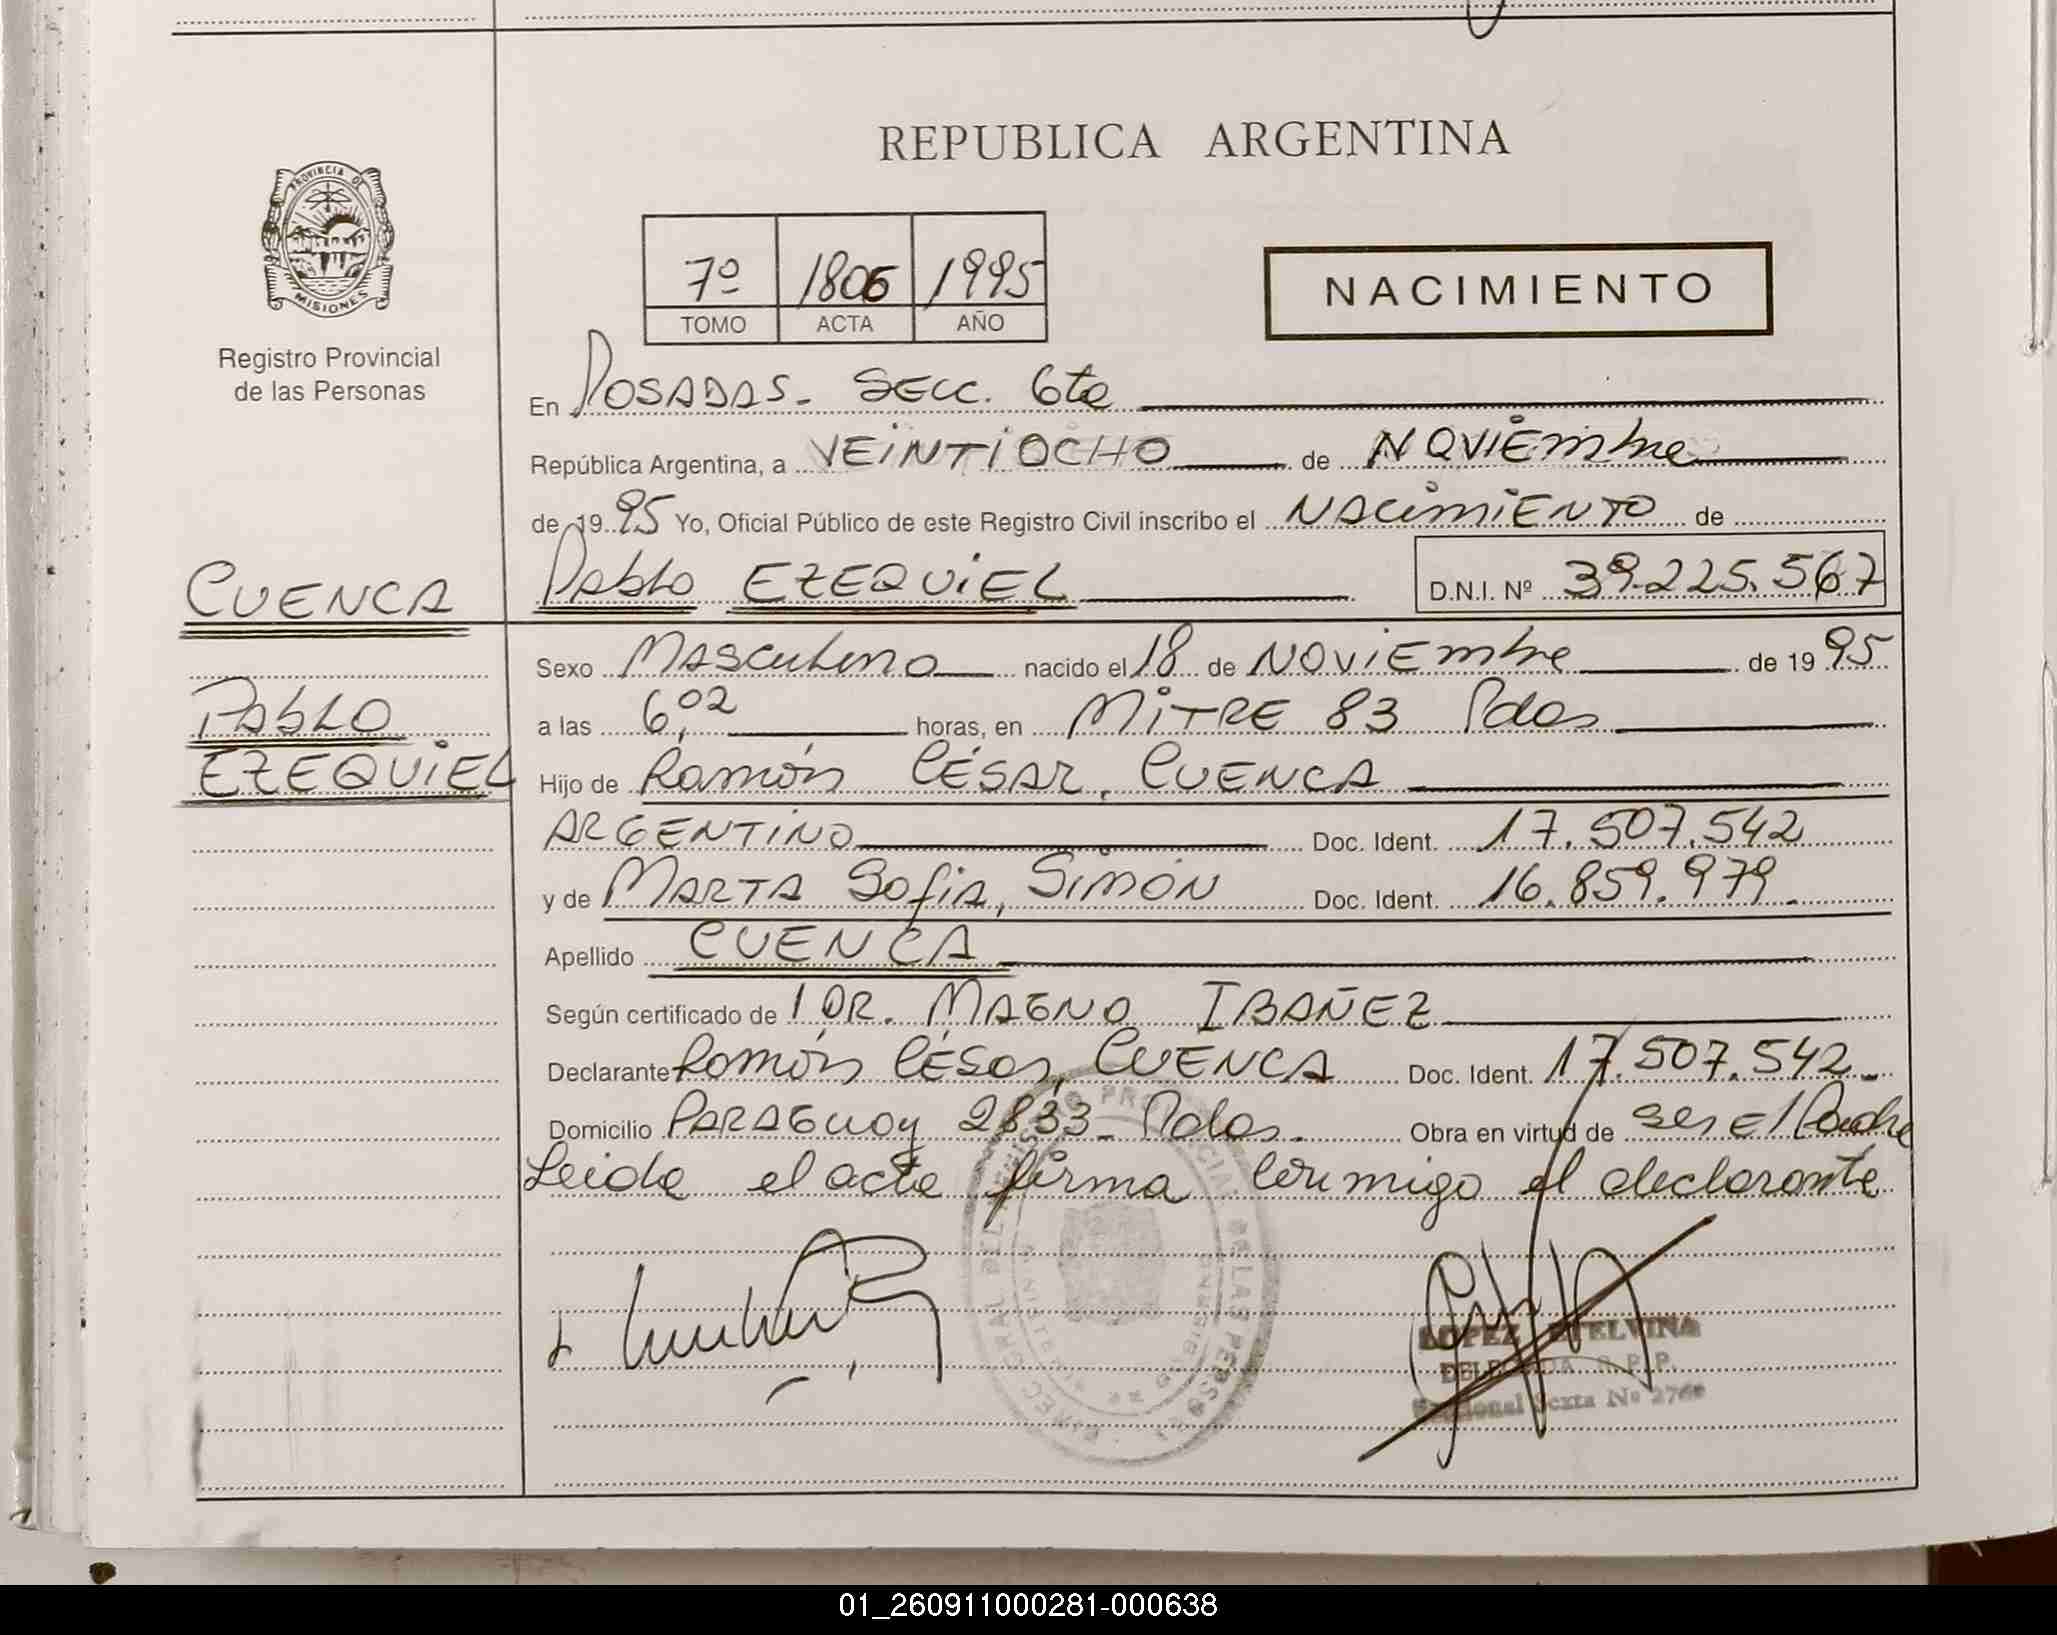 REPUBLICA ARGENTINA
PROVINCIA DE
MISIONES
Registro Provincial
de las Personas
7º 1806 1995
TOMO ACTA AÑO
NACIMIENTO
En POSADAS - SECC. 6ta
República Argentina, a VEINTIOCHO de NOVIEmbre
de 19 95 Yo, Oficial Público de este Registro Civil inscribo el NACimiENTO de
CUENCA
Pablo EZEQUiEL D.N.I. Nº 39.225.567
Sexo Masculino nacido el 18 de NOViEmbre de 19 95
Pablo
a las 6,02 horas, en MiTRE 83 Pdas
EZEQUiEL
Hijo de Ramón CÉSAR, CUENCA
ARGENTINO Doc. Ident. 17.507.542
y de MARTA Sofia, SiMÓN Doc. Ident. 16.859.979.
Apellido CUENCA
Según certificado de 1 DR. MAGNO IBAÑEZ
Declarante Ramón César, CUENCA Doc. Ident. 17.507.542-
Domicilio PARAGuay 2833- Pdas. Obra en virtud de ser El Padre
Leida el acta firma conmigo el declarante
LOPEZ ETELVINA
DELEGADA R.P.P.
Seccional Sexta Nº
01_260911000281-000638